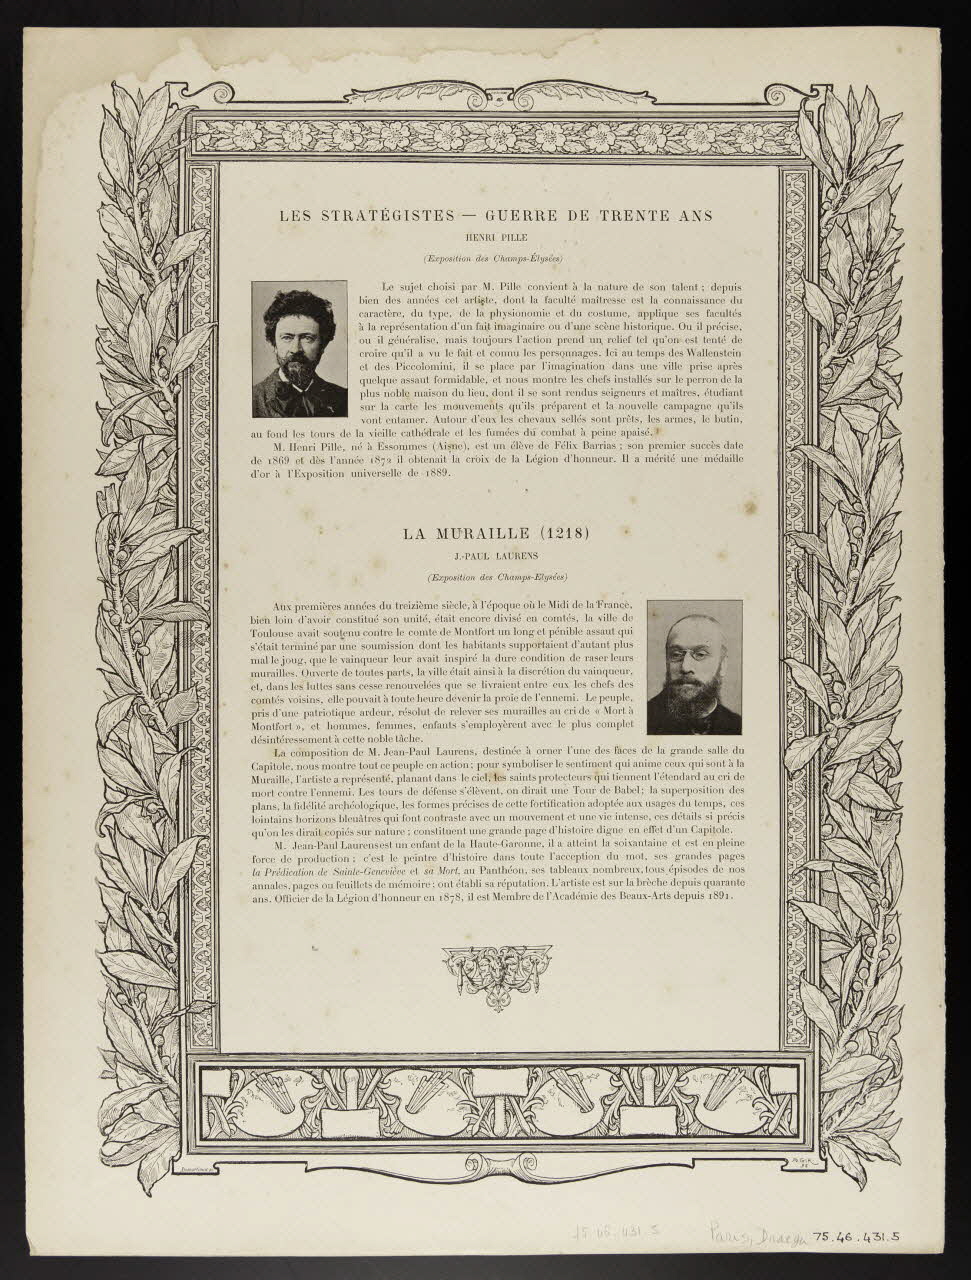 LES STRATÉGISTES — GUERRE DE TRENTE ANS
HENRI PILLE
(Exposition des Champs-Élysées)
Le sujet choisi par M. Pille convient à la nature de son talent ; depuis
bien des années cet artiste, dont la faculté maîtresse est la connaissance du
caractère, du type, de la physionomie et du costume, applique ses facultés
à la représentation d'un fait imaginaire ou d'une scène historique. Ou il précise,
ou il généralise, mais toujours l'action prend un relief tel qu'on est tenté de
croire qu'il a vu le fait et connu les personnages. Ici au temps des Wallenstein
et des Piccolomini, il se place par l'imagination dans une ville prise après
quelque assaut formidable, et nous montre les chefs installés sur le perron de la
plus noble maison du lieu, dont il se sont rendus seigneurs et maîtres, étudiant
sur la carte les mouvements qu'ils préparent et la nouvelle campagne qu'ils
vont entamer. Autour d'eux les chevaux sellés sont prêts, les armes, le butin,
au fond les tours de la vieille cathédrale et les fumées du combat à peine apaisé.
M. Henri Pille, né à Essommes (Aisne), est un élève de Félix Barrias ; son premier succès date
de 1869 et dès l'année 1872 il obtenait la croix de la Légion d'honneur. Il a mérité une médaille
d'or à l'Exposition universelle de 1889.
LA MURAILLE (1218)
J.-PAUL LAURENS
(Exposition des Champs-Elysées)
Aux premières années du treizième siècle, à l'époque où le Midi de la France,
bien loin d'avoir constitué son unité, était encore divisé en comtés, la ville de
Toulouse avait soutenu contre le comte de Montfort un long et pénible assaut qui
s'était terminé par une soumission dont les habitants supportaient d'autant plus
mal le joug, que le vainqueur leur avait inspiré la dure condition de raser leurs
murailles. Ouverte de toutes parts, la ville était ainsi à la discrétion du vainqueur,
et, dans les luttes sans cesse renouvelées que se livraient entre eux les chefs des
comtés voisins, elle pouvait à toute heure devenir la proie de l'ennemi. Le peuple,
pris d'une patriotique ardeur, résolut de relever ses murailles au cri de « Mort à
Montfort », et hommes, femmes, enfants s'employèrent avec le plus complet
désintéressement à cette noble tâche.
La composition de M. Jean-Paul Laurens, destinée à orner l'une des faces de la grande salle du
Capitole, nous montre tout ce peuple en action ; pour symboliser le sentiment qui anime ceux qui sont à la
Muraille, l'artiste a représenté, planant dans le ciel, les saints protecteurs qui tiennent l'étendard au cri de
mort contre l'ennemi. Les tours de défense s'élèvent, on dirait une Tour de Babel ; la superposition des
plans, la fidélité archéologique, les formes précises de cette fortification adoptée aux usages du temps, ces
lointains horizons bleuâtres qui font contraste avec un mouvement et une vie intense, ces détails si précis
qu'on les dirait copiés sur nature ; constituent une grande page d'histoire digne en effet d'un Capitole.
M. Jean-Paul Laurens est un enfant de la Haute-Garonne, il a atteint la soixantaine et est en pleine
force de production ; c'est le peintre d'histoire dans toute l'acception du mot, ses grandes pages
la Prédication de Sainte-Geneviève et sa Mort, au Panthéon, ses tableaux nombreux, tous épisodes de nos
annales, pages ou feuillets de mémoire ; ont établi sa réputation. L'artiste est sur la brèche depuis quarante
ans. Officier de la Légion d'honneur en 1878, il est Membre de l'Académie des Beaux-Arts depuis 1891.
75.46.431.5 Paris, Draeger 75.46.431.5